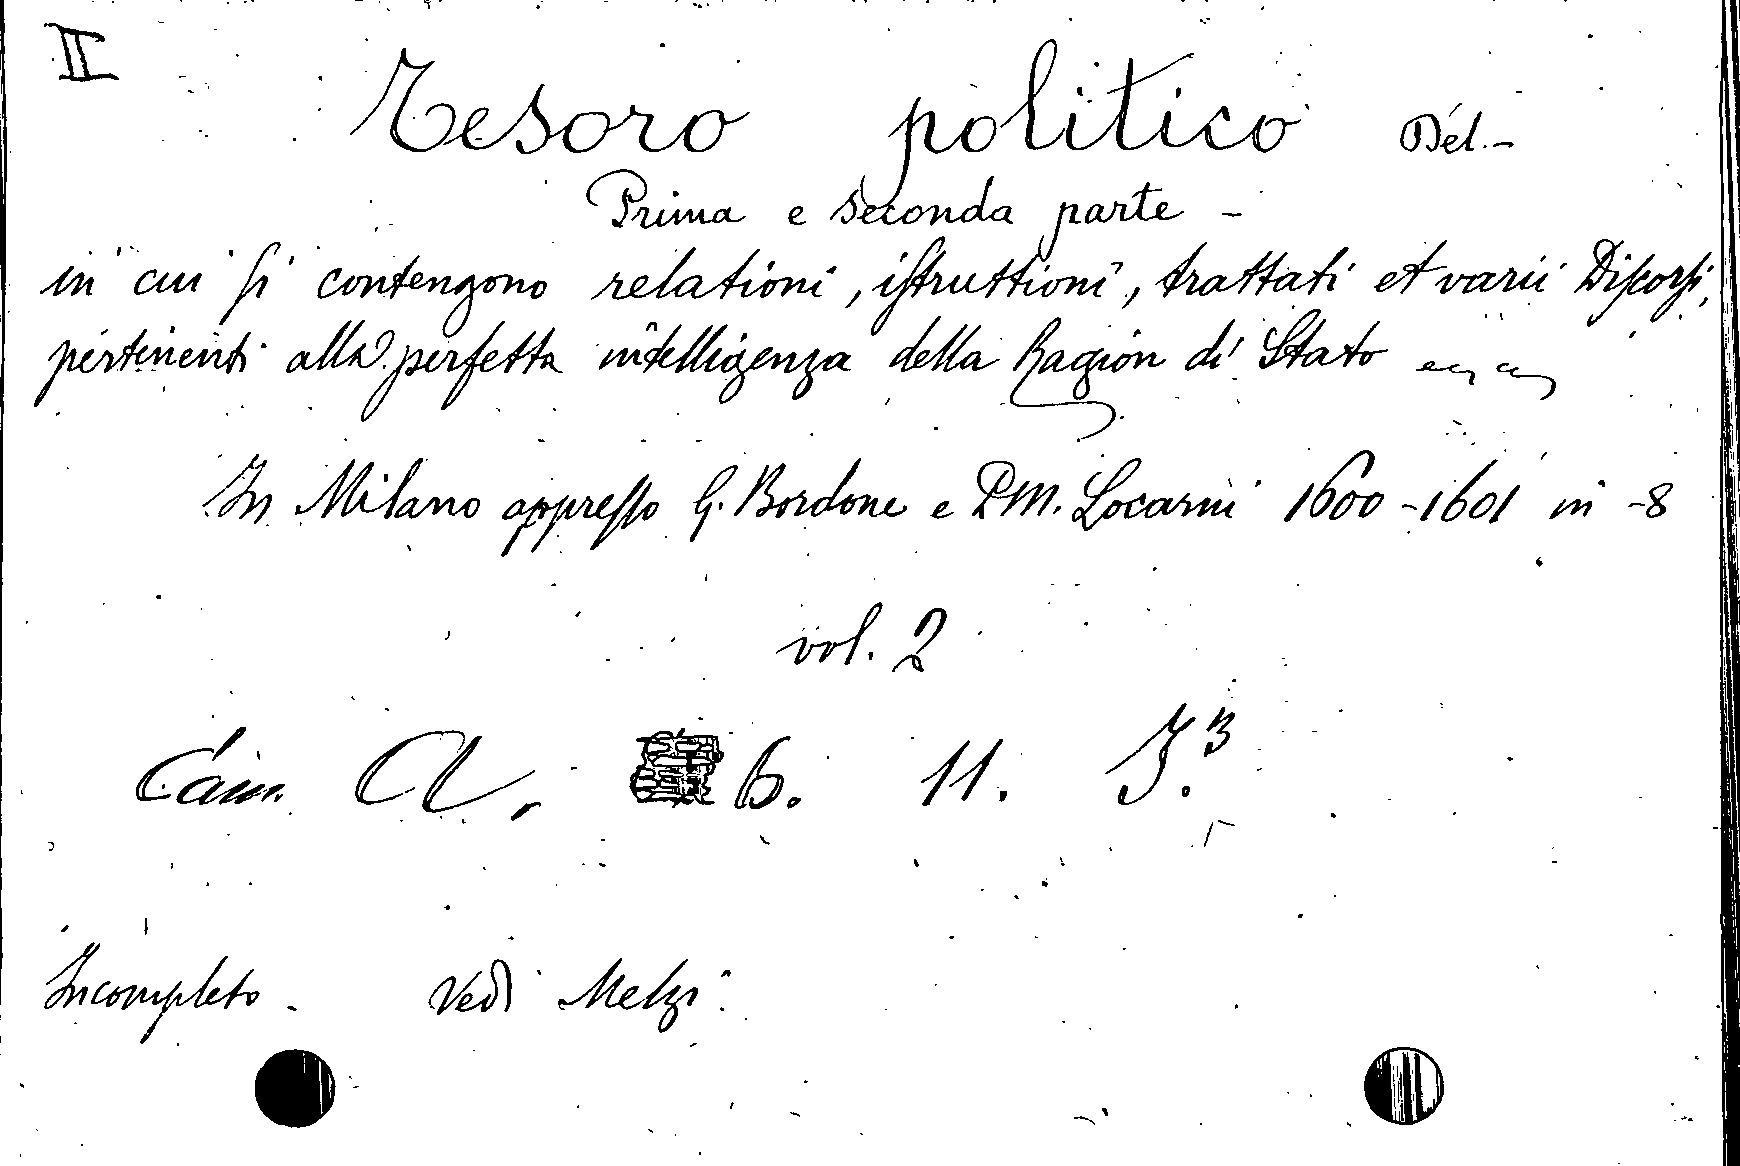 II
Tesoro politico Del.-
Prima e seconda parte -
in cui si contengono relationi, istruttioni, trattati et varii Discorsi,
pertinenti alla perfetta intelligenza della Ragion di Stato
In Milano appresso G. Bordone e P.M. Locarni 1600-1601 in -8
vol. 2
Cam. A. 6. 11. I.3
Incompleto - Vedi Melzi